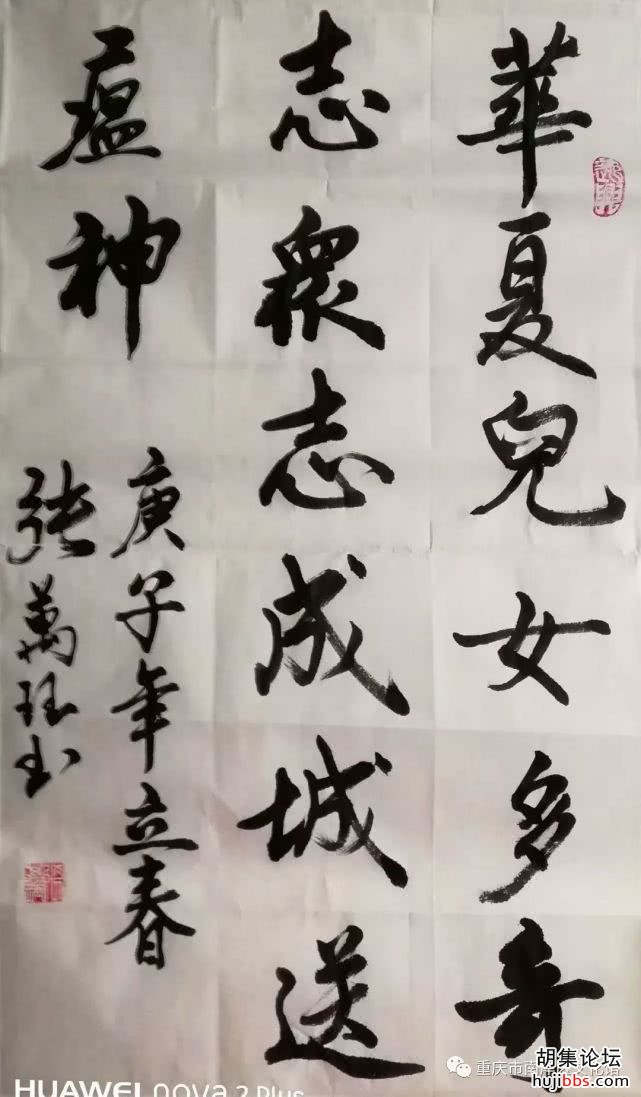 華夏兒女多奇
志眾志成城送
瘟神
庚子年立春
張萬书
重庆市南岸区文化馆
胡集论坛
hujibbs.com
HUAWEI nova 2 Plus